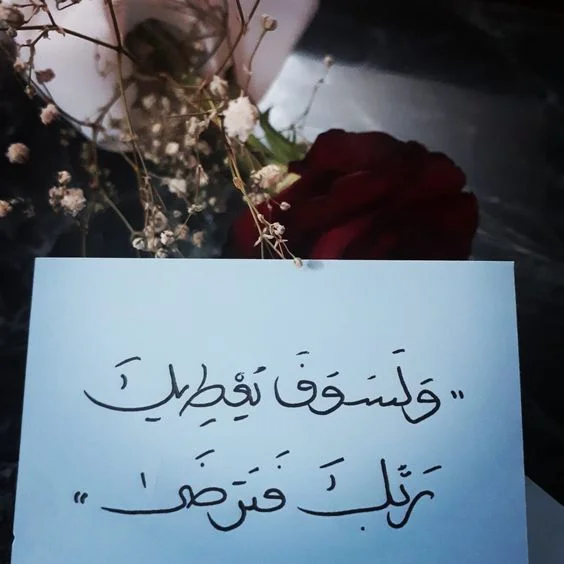 "وَلَسَوَفَ يُعْطِيكَ
رَبُّكَ فَتَرضَىٰ"